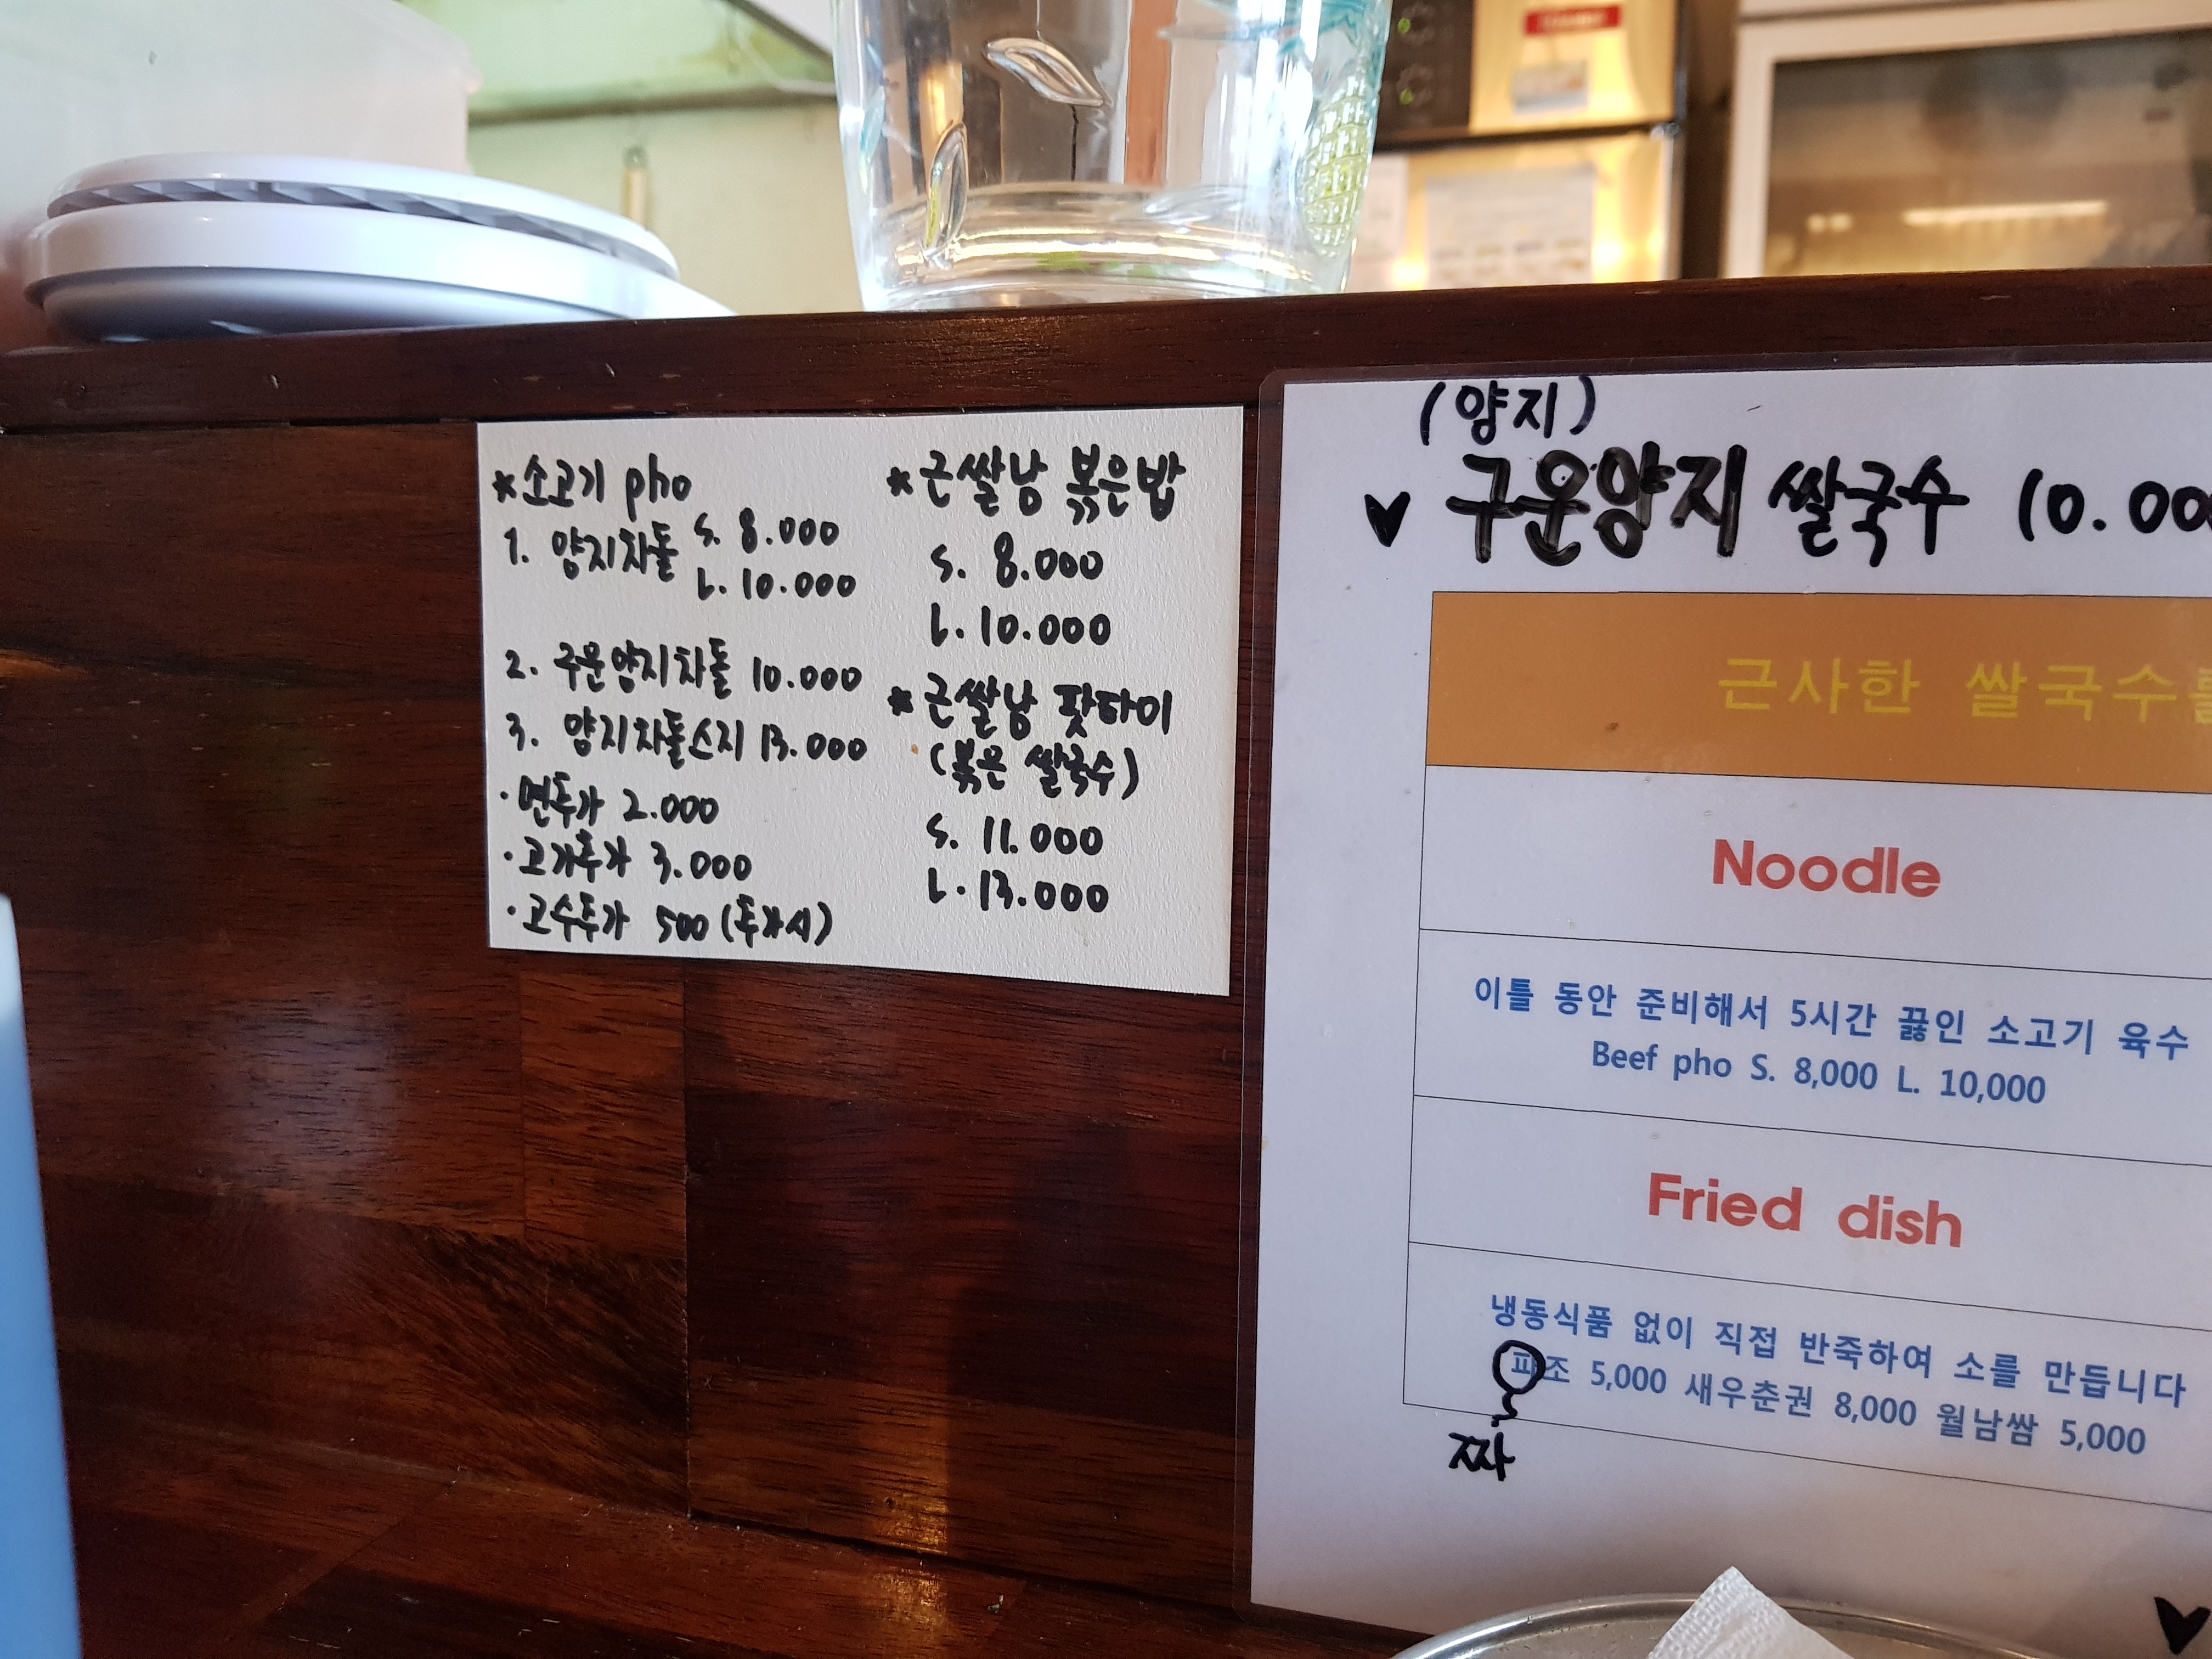 *소고기 pho
1. 양지차돌 S. 8.000
L. 10.000
2. 구운양지차돌 10.000
3. 양지차돌스지 13.000
· 면추가 2.000
· 고기추가 3.000
· 고수추가 500 (추가시)
*근쌀남 볶은밥
S. 8.000
L. 10.000
*근쌀남 팟타이
(볶은 쌀국수)
S. 11.000
L. 13.000
(양지)
♥ 구운양지 쌀국수 10.00
근사한 쌀국수를
Noodle
이틀 동안 준비해서 5시간 끓인 소고기 육수
Beef pho S. 8,000 L. 10,000
Fried dish
냉동식품 없이 직접 반죽하여 소를 만듭니다
파조 5,000 새우춘권 8,000 월남쌈 5,000
짜